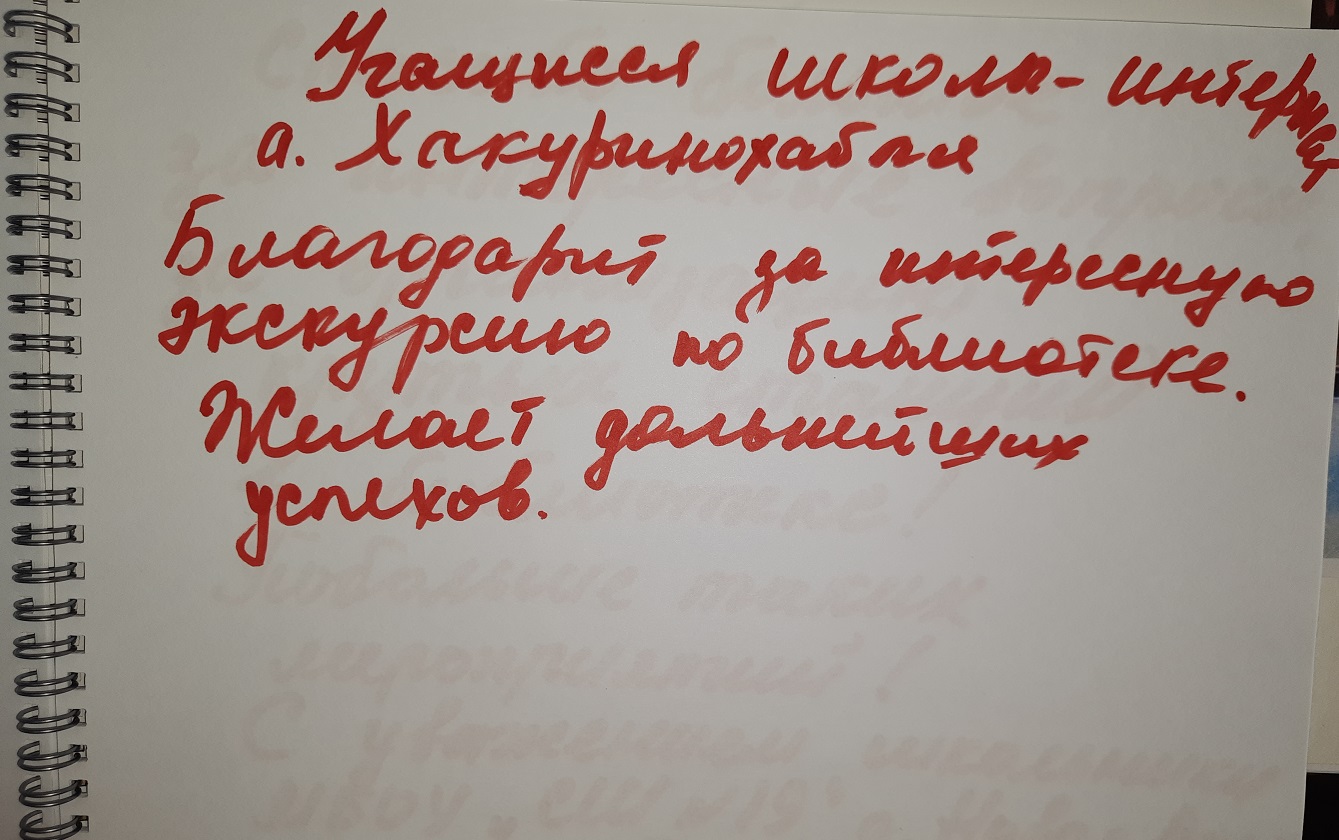 Учащиеся школы-интернат
а. Хакуринохабля
Благодарит за интересную
экскурсию по библиотеке.
Желает дальнейших
успехов.